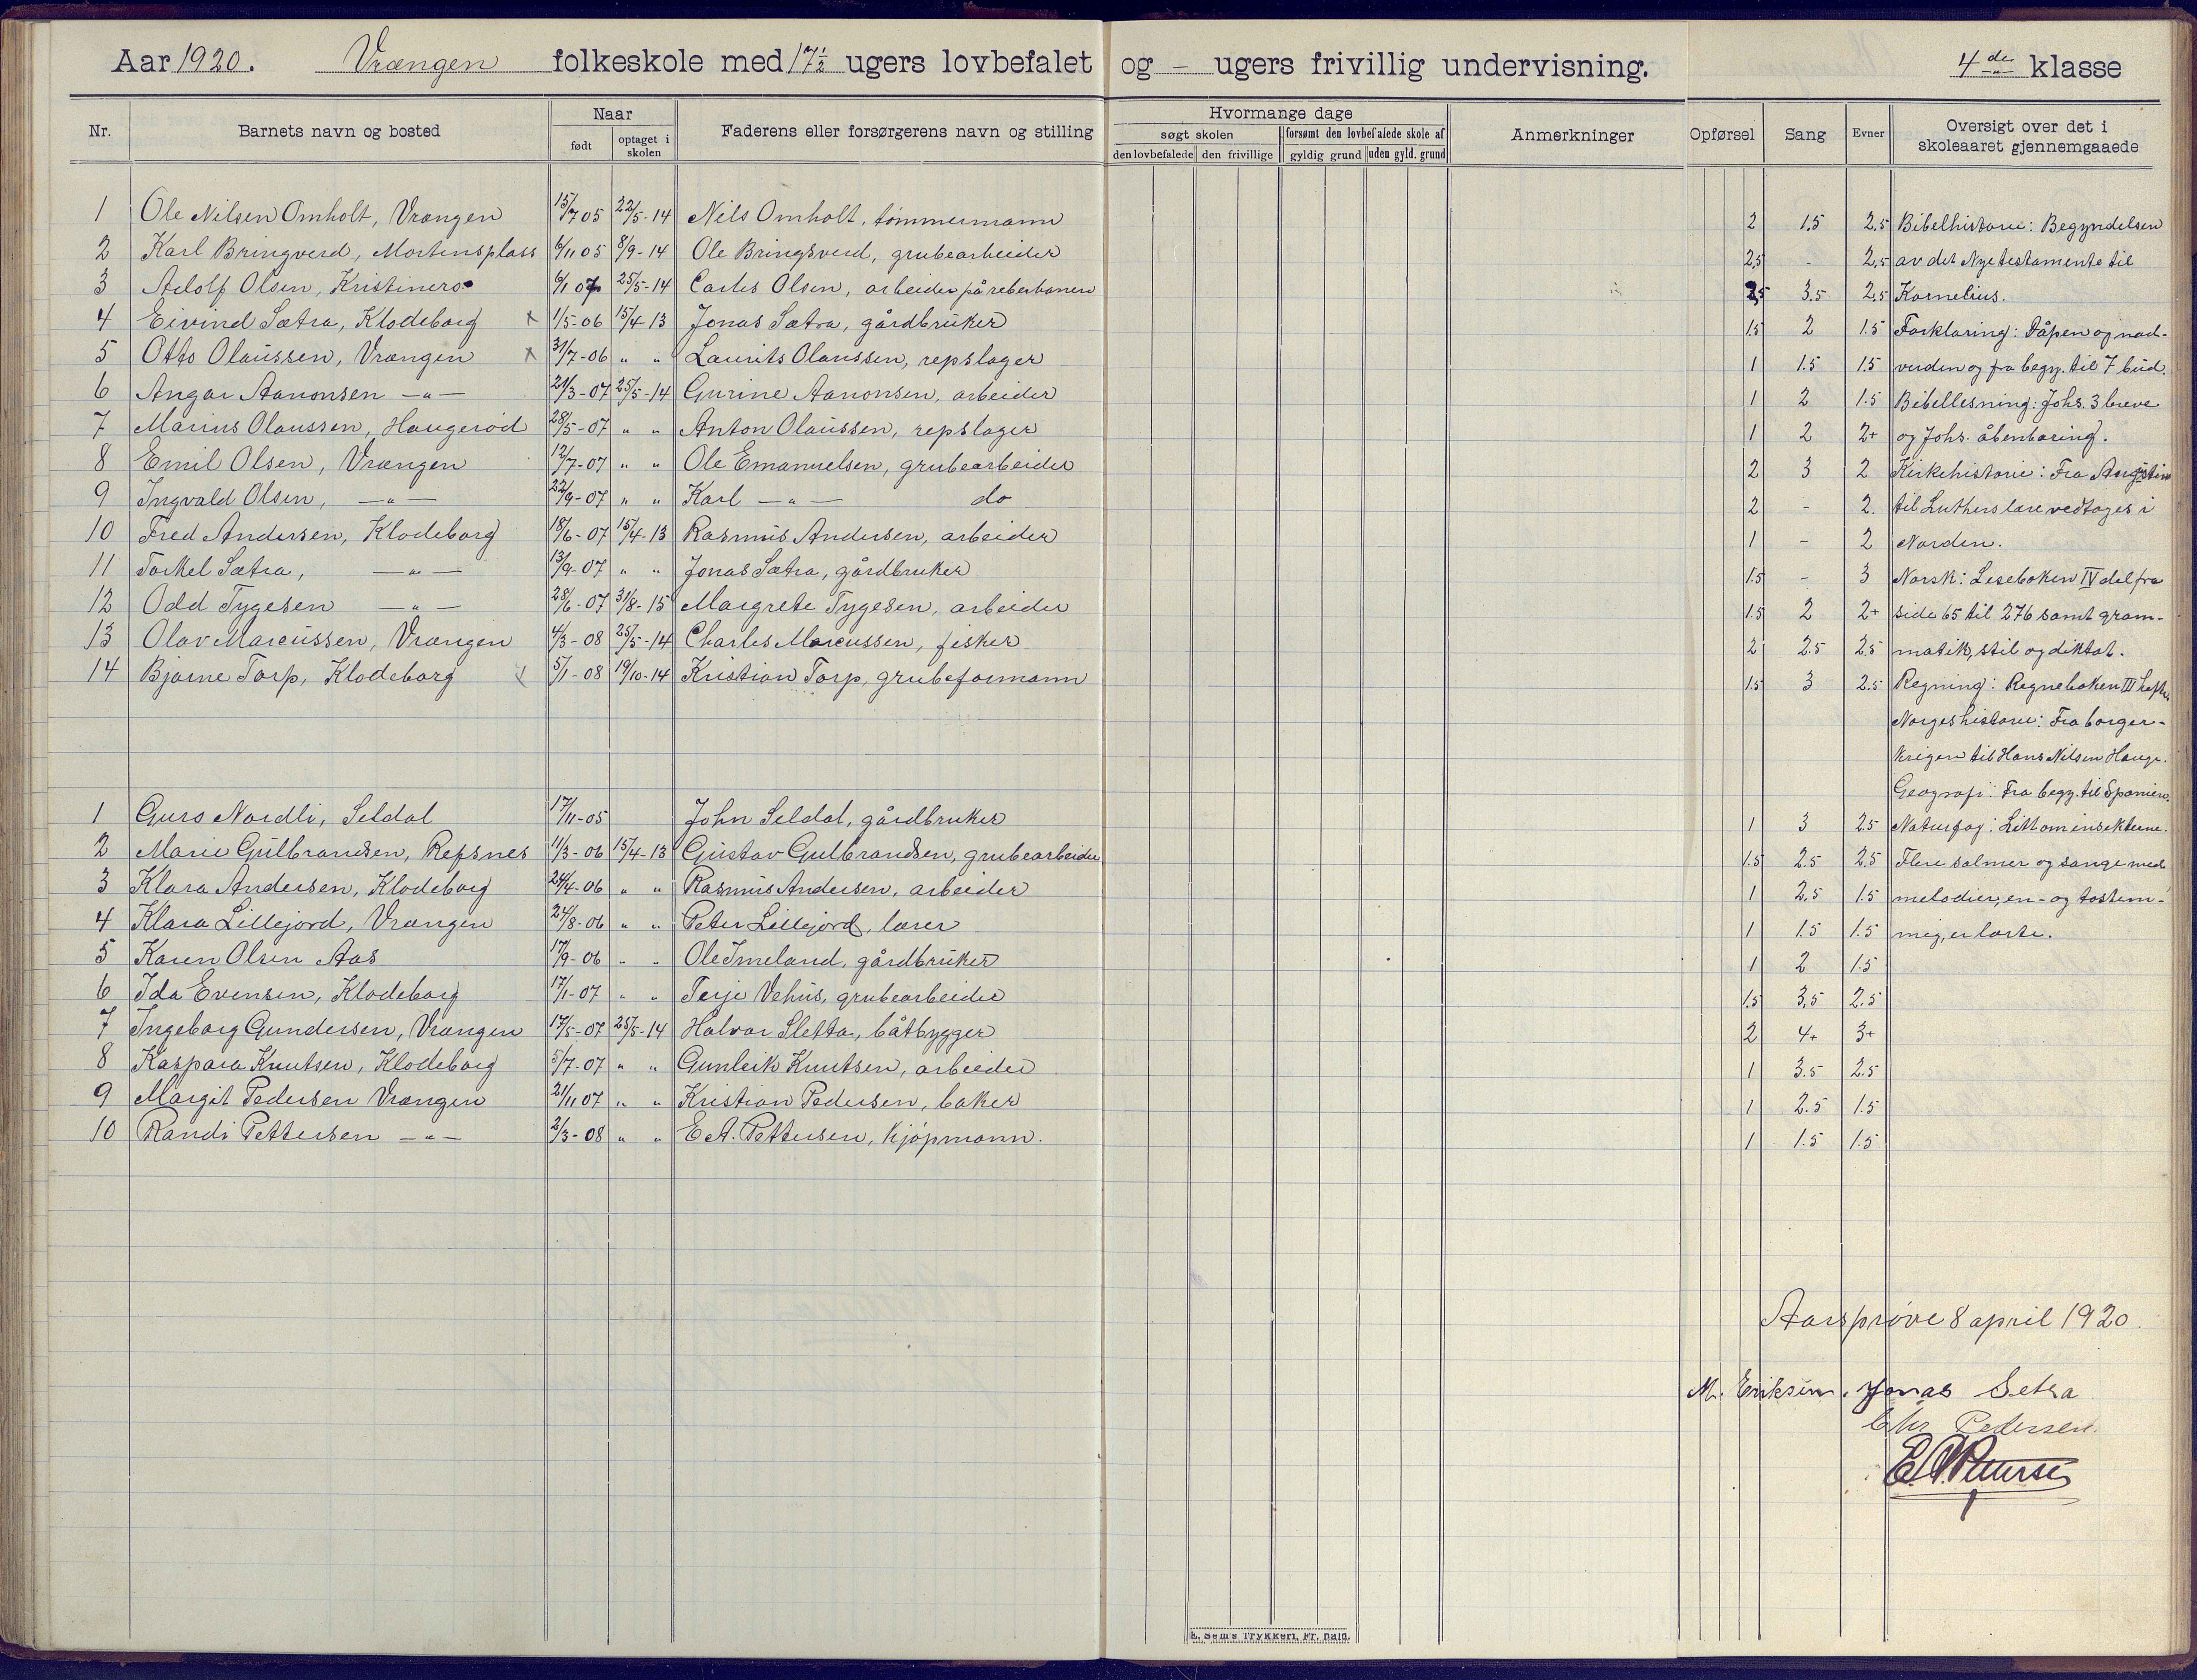 Aar 1920. Vrængen folkeskole med 17½ ugers lovbefalet og - ugers frivillig undervisning. 4de klasse
Nr. Barnets navn og bosted Naar født optaget i skolen Faderens eller forsørgerens navn og stilling
Hvormange dage søgt skolen den lovbefalede den frivillige forsømt den lovbefalede skole af gyldig grund uden gyld. grund Anmerkninger Opførsel Sang Evner Oversigt over det i skoleaaret gjennemgaaede
1 Ole Nilsen Omholt, Vrængen 15/7 05 22/5-14 Nils Omholt, tømmermann 2 1.5 2.5 Bibelhistorie: Begyndelsen
2 Karl Bringverd, Mortensplass 6/11 05 8/9-14 Ole Bringsverd, grubearbeider 2,5 - 2,5 av det Nye testamente til
3 Adolf Olsen, Kristinero 6/1 07 25/5-14 Carles Olsen, arbeider på reberbanen 2,5 3.5 2,5 Kornelius.
4 Eivind Sætra, Klodeborg x 1/5-06 15/4 13 Jonas Sætra, gårdbruker 1.5 2 1.5 Forklaring: Dåpen og nad-
5 Otto Olaussen, Vrængen x 31/7-06 " " Laurits Olaussen, repslager 1 1.5 1.5 verden og fra begy. til 7 bud.
6 Angar Aanonsen -"- 21/3-07 25/5-14 Gurine Aanonsen, arbeider 1 2 1.5 Bibellesning: Johs. 3 breve
7 Marius Olaussen, Haugerød 28/5-07 " " Anton Olaussen, repslager 1 2 2+ og Johs. åbenbaring.
8 Emil Olsen, Vrængen 12/7-07 " " Ole Emanuelsen, grubearbeider 2 3 2 Kirkehistorie: Fra Augustin
9 Ingvald Olsen, -"- 22/9-07 " " Karl -"- do 2 - 2. til Luthers lære vedtages i
10 Fred Andersen, Klodeborg 18/6-07 15/4-13 Rasmus Andersen, arbeider 1 - 2 Norden.
11 Torkel Sætra, -"- 13/9-07 " " Jonas Sætra, gårdbruker 1.5 - 3 Norsk: Leseboken IV del fra
12 Odd Tygesen -"- 28/6-07 31/8-15 Margrete Tygesen, arbeider 1.5 2 2+ side 65 til 276 samt gram-
13 Olav Marcussen, Vrængen 4/3-08 25/5-14 Charles Marcussen, fisker 2 2.5 2.5 matik, stil og diktat.
14 Bjarne Torp, Klodeborg x 5/1-08 19/10-14 Kristian Torp, grubeformann 1.5 3 2.5 Regning: Regneboken III hefte
Norgeshistorie: Fra borger-
krigen til Hans Nilsen Hauge.
Geografi: Fra begy. til Spanien.
1 Guro Nordli, Seldal 17/11-05 John Seldal, gårdbruker 1 3 2.5 Naturfag: Litt om insekterne.
2 Marie Gulbrandsen, Refsnes 11/3-06 15/4-13 Gustav Gulbrandsen, grubearbeider 1.5 2.5 2.5 Flere salmer og sange med
3 Klara Andersen, Klodeborg 24/4-06 " " Rasmus Andersen, arbeider 1 2,5 1.5 melodier, en- og tostem-
4 Klara Lillejord, Vrængen 24/8-06 " " Peter Lillejord, lærer 1 1.5 1.5 mig, er lærte.
5 Karen Olsen Aas 17/9-06 " " Ole Imeland, gårdbruker 1 2 1.5
6 Ida Evensen, Klodeborg 17/1-07 " " Terje Vehus, grubearbeider 1.5 3,5 2.5
7 Ingeborg Gundersen, Vrængen 17/5-07 25/5-14 Halvor Sletta, båtbygger 2 4+ 3+
8 Kaspara Knutsen, Klodeborg 5/7-07 " " Gunleik Knutsen, arbeider 1 3.5 2.5
9 Margit Pedersen Vrængen 21/11 07 " " Kristian Pedersen, baker 1 2.5 1.5
10 Randi Pettersen -"- 2/3-08 " " E.A. Pettersen, kjøpmann. 1 1.5 1.5
Aarsprøve 8 april 1920.
M. Eriksen. Jonas Setra
Chr. Pedersen.
E. Sems Trykkeri, Fr.hald.